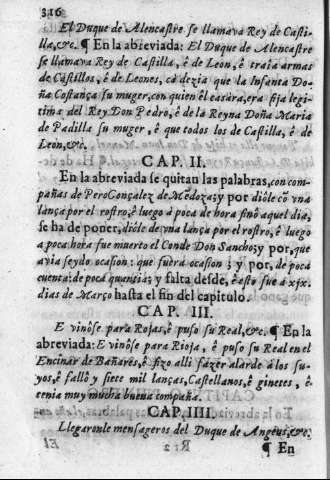 316
El Duque de Alencastre se llamava Rey de Casti-
lla,&c. ¶ En la abieviada: El Duque de Alencastre
se llamava Rey de Castilla, é de Leon, è traìa armas
de Castillos, é de Leones, cà dezia que la Infanta Do-
ña Costança su muger, con quien él casàra, era fija legi-
tima del Rey Don Pedro, é de la Reyna Doña Maria
de Padilla su muger, é que todos los de Castilla, é de
Leon,&c.
CAP. II.
En la abreviada se quitan las palabras, con com-
pañas de Pero Gonçalez de Mẽdoza; y por diòle cõ vna
lança por el rostro, è luego à poca de hora finò aquel dia,
se ha de poner, diòle de vna lança por el rostro, é luego
a poca hora fue muerto el Conde Don Sancho; y por, que
avia seydo ocasion: que fuera ocasion; y por, de poca
cuenta: de poca quantia; y falta desde, è esto fue à xjx.
dias de Março hasta el fin del capitulo.
CAP. III.
E vinòse para Rojas, è puso su Real,&c. ¶ En la
abreviada: E vinòse para Rioja, é puso su Real en el
Encinar de Bañares, é fizo alli fàzer alarde à los su-
yos, é fallò y siete mil lanças, Castellanos, é ginetes, é
tenia muy mucha buena compaña.
CAP. IIII.
Llegaronle mensageros del Duque de Angeus,&c.
¶ En